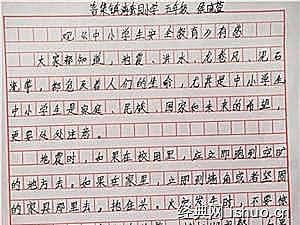 吉镇小学 五年级
观《中小学生安全教育》有感
大家都知道，地震、洪水、龙卷风、泥石
流等，都危害人们的生命，尤其是中小学生
中小学生是家庭、民族、国家和未来的希望，
更要处处注意。
地震时，如果在校园里，应立即跑到空旷
的地方去。如果在家里，立即到墙角或者坚固
的家具那里去，抱住头。火灾发生时，不要惊
经典网 jshuo.cn